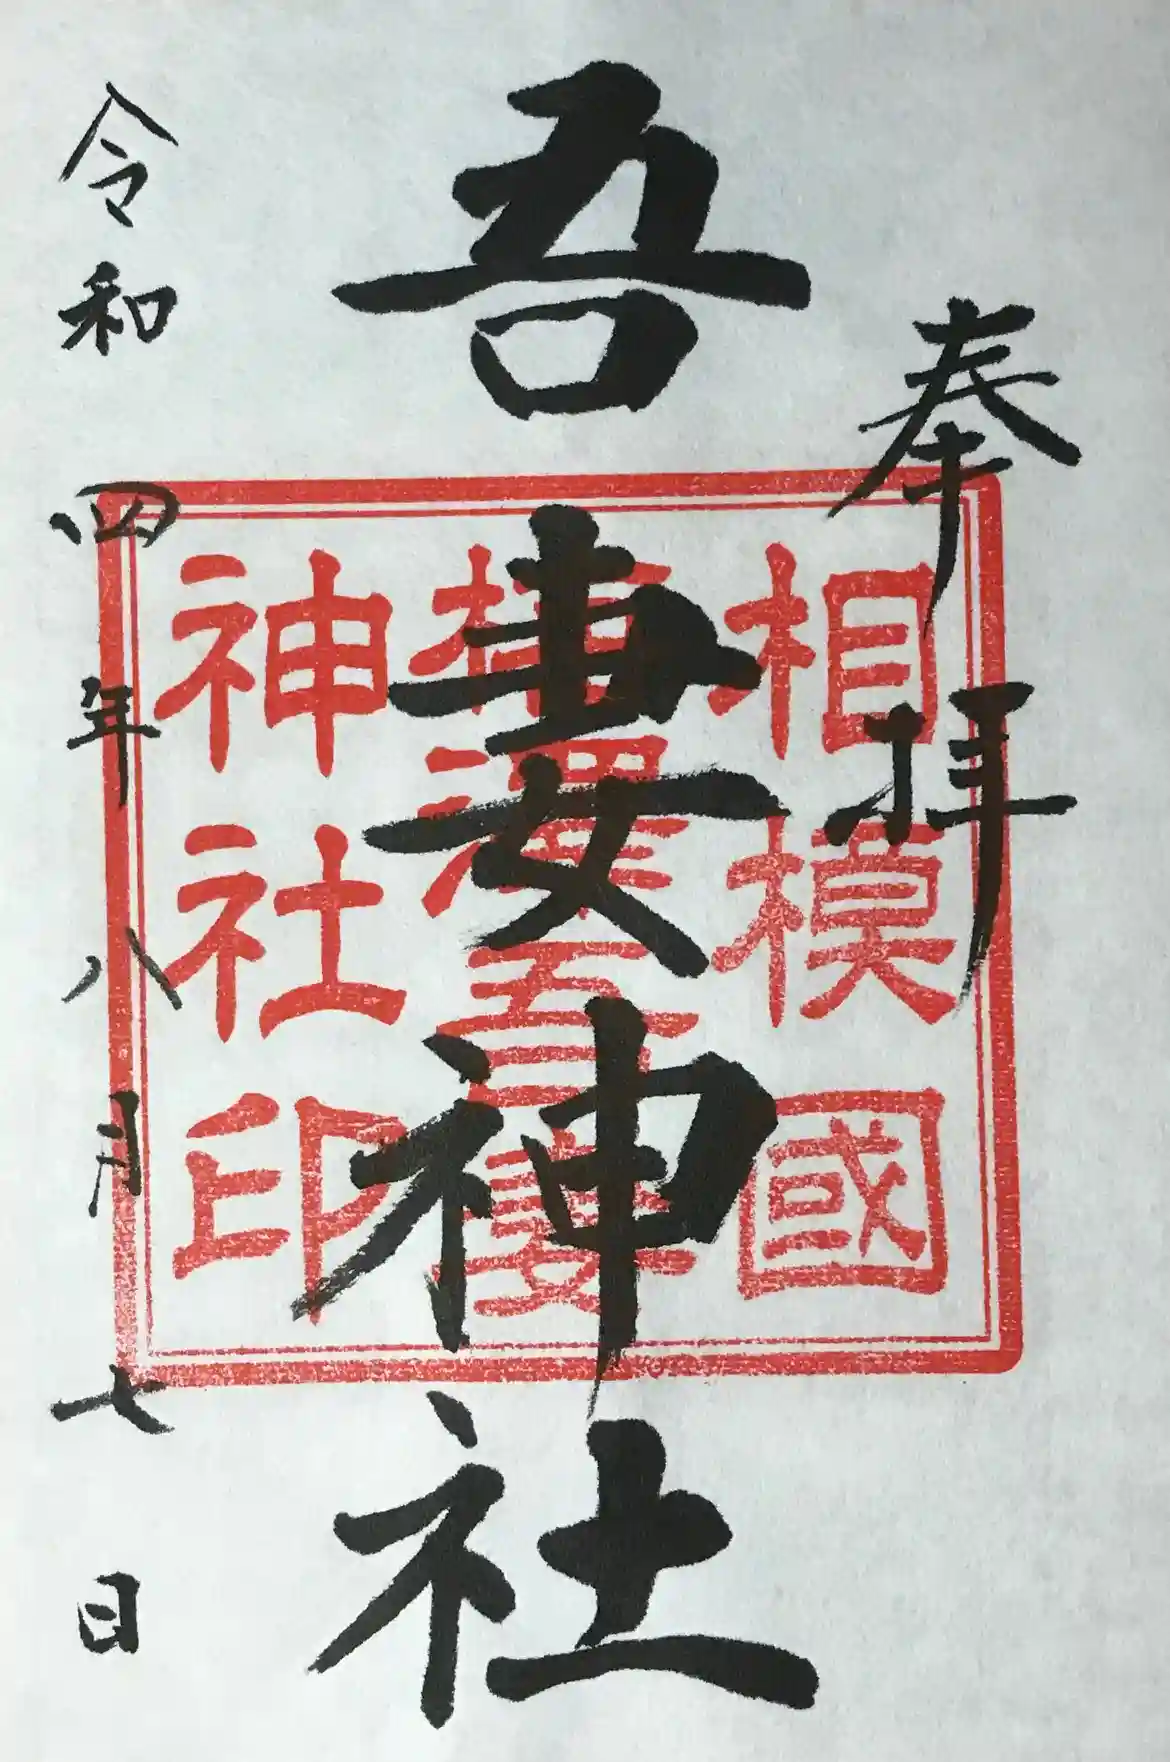 奉拝
相模國
吾妻神社
梅澤吾妻
神社印
令和四年八月七日